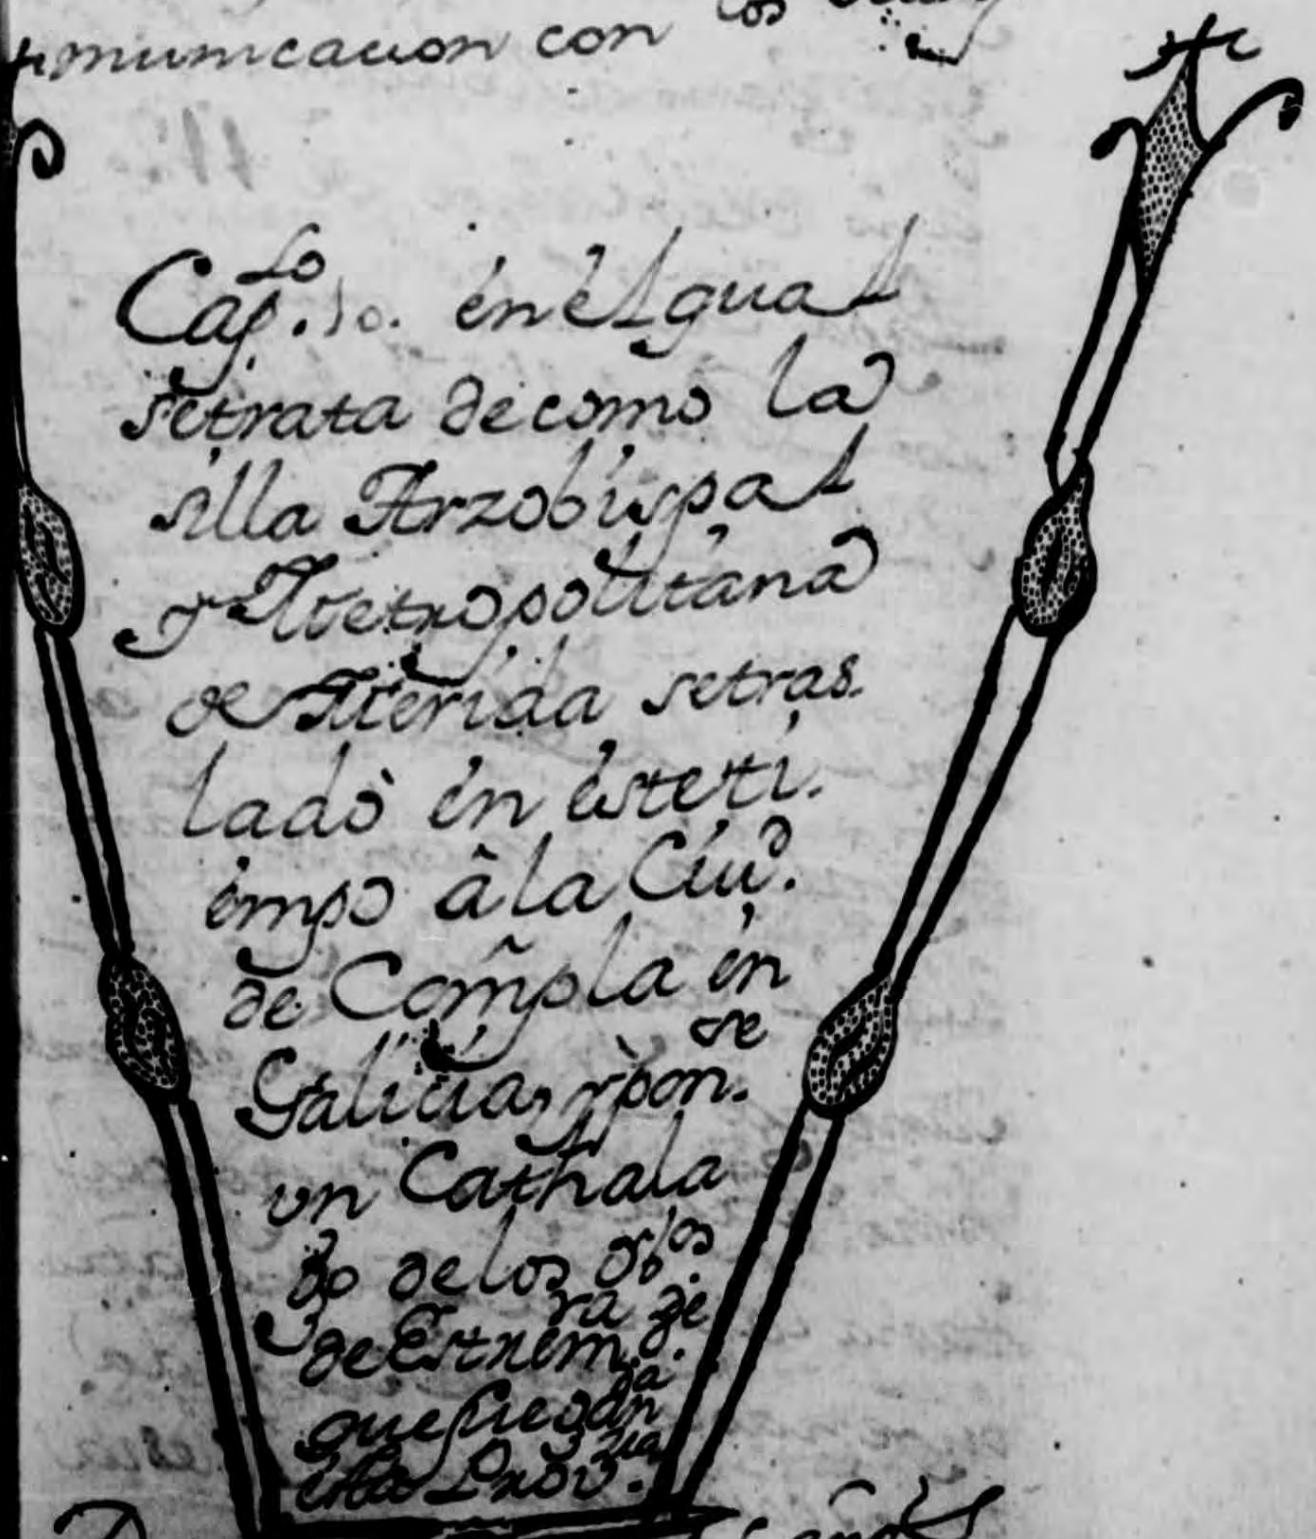 municacion con los
Cap.lo 10. én él qual
setrata decomo la
silla Arzobispal
y Metropolitána
de Merida setras
ladò én ésteti.
émpo âla Ciud.
de Comp̃la én
Galicia, ypònse.
vn Cathala
go delos Obpos
de Estremra. de
quefue
ésta Provzia.